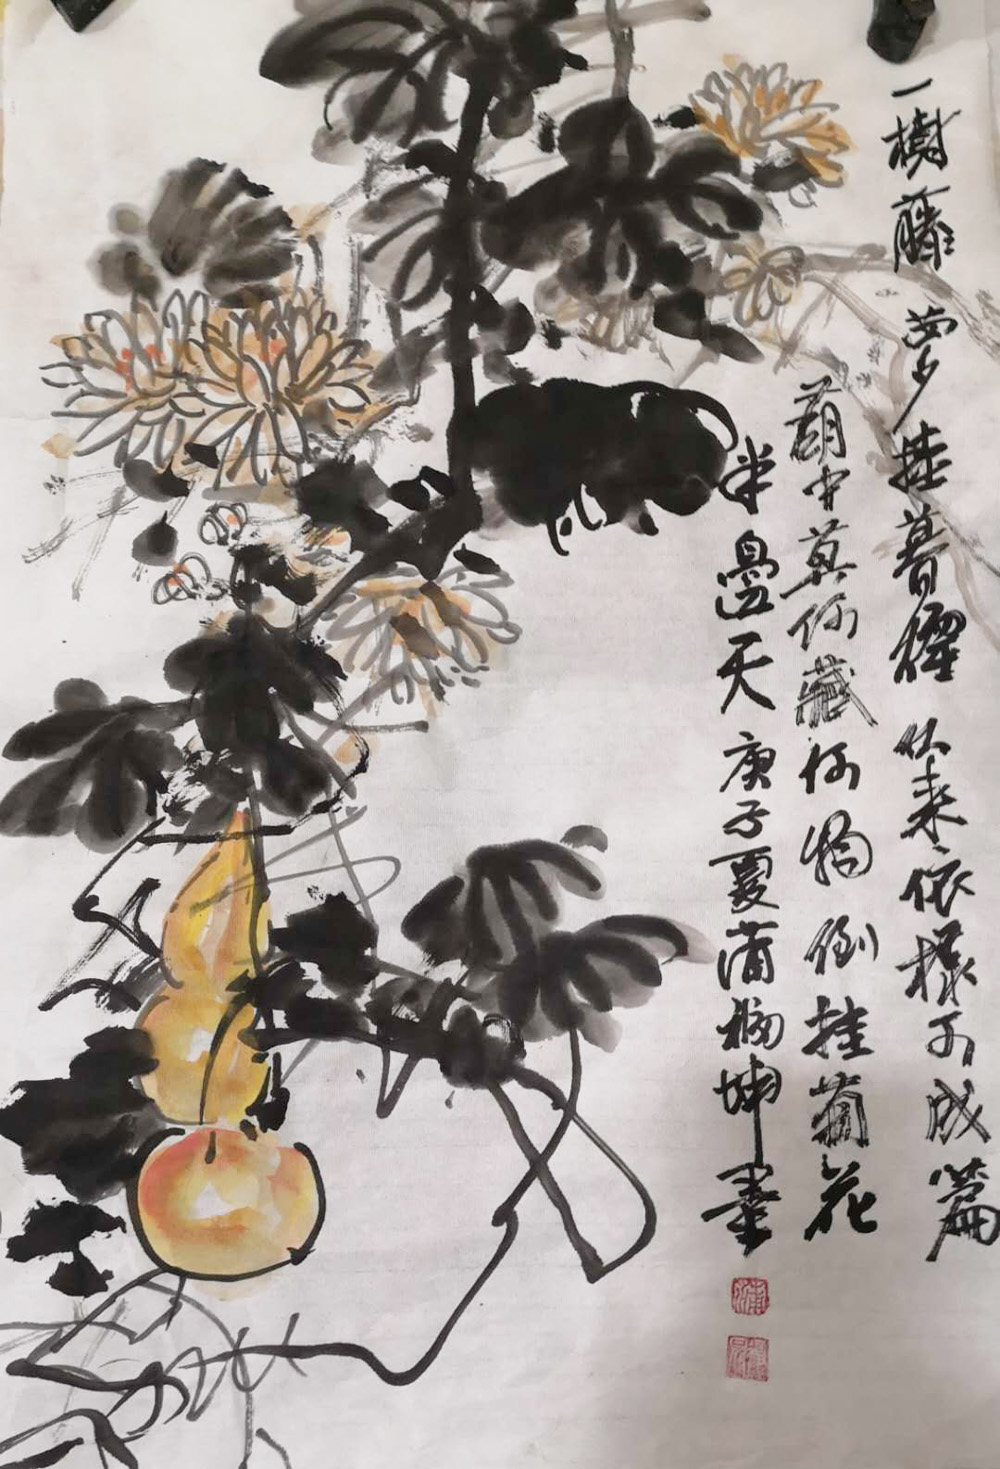 一樹藤萝挂暮来依樣不成篇
葫中莫问藏何物倒挂菊花
半邊天庚子夏蒲坤畫